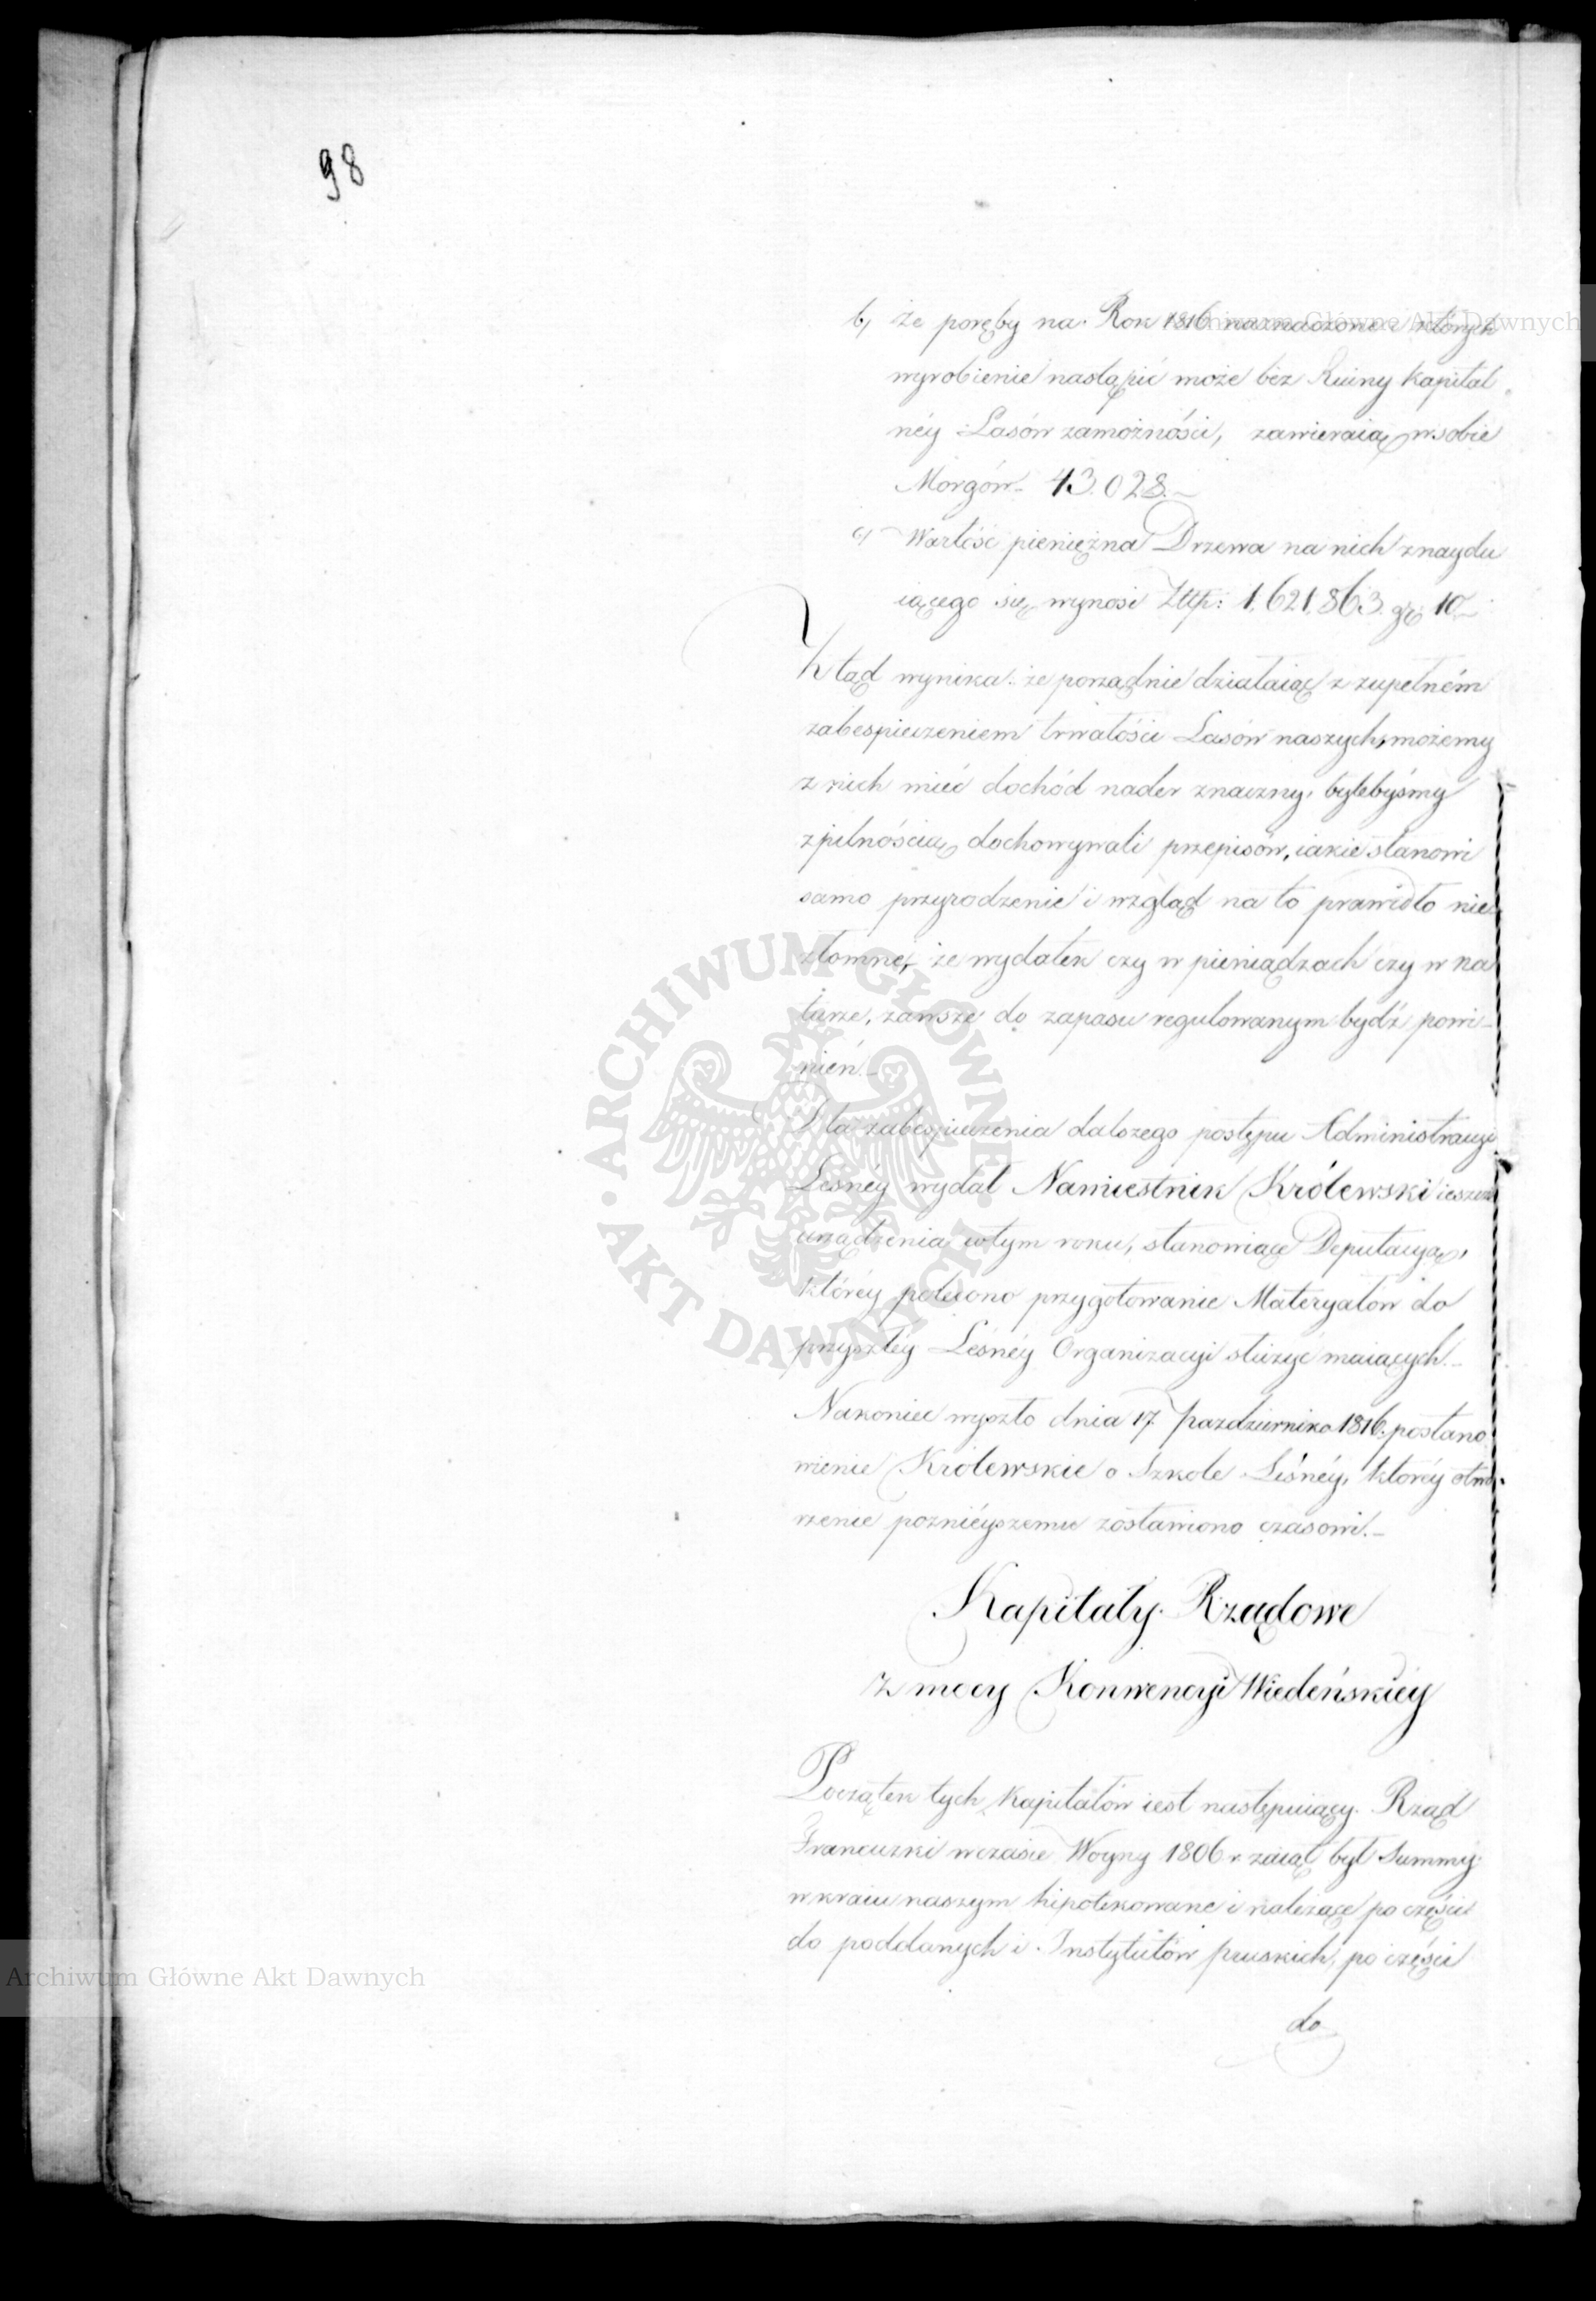 98
b, że poręby na Rok 1816 naznaczone i których
wyrobienie nastąpić może bez Ruiny kapital
néy Lasów zamożności, zawieraią w sobie
Morgów 43.028.
c, Wartość pieniężna Drzewa na nich znaydu
iącego się wynosi Złtp: 1,621,863. gr: 10
Ztąd wynika: że porządnie działaiąc z zupełném
zabespieczeniem trwałości Lasów naszych, możemy
z nich mieć dochód nader znaczny, bylebyśmy
z pilnością dochowywali przepisów, iakie stanowi
samo przyrodzenie i wzgląd na to prawidło nie
złomne, że wydatek czy w pieniądzach czy w na
turze, zawsze do zapasu regulowanym bydź powi-
nien.
Dla zabespieczenia dalszego postępu Administracyi
Leśnéy wydał Namiestnik Królewski ieszcze
urządzenia w tym roku, stanowiące Deputacyą,
któréy polecono przygotowanie Materyałów do
przyszłéy Leśnéy Organizacyi służyć maiących.
Nakoniec wyszło dnia 17. Pazdziernika 1816. postano
wienie Królewskie o Szkole Leśnéy, któréy otwo-
rzenie poznieyszemu zostawiono czasowi.
Kapitały Rządowe
z mocy Konwencyi Wiedeńskiéy
Początek tych Kapitałów iest następuiący. Rząd
Francuzki w czasie Woyny 1806 r. zaiął był Summy
w kraiu naszym hipotekowane i należące po części
do poddanych i Instytutów pruskich, po części
do
Archiwum Główne Akt Dawnych
Archiwum Główne Akt Dawnych
ARCHIWUM GŁÓWNE • AKT DAWNYCH •